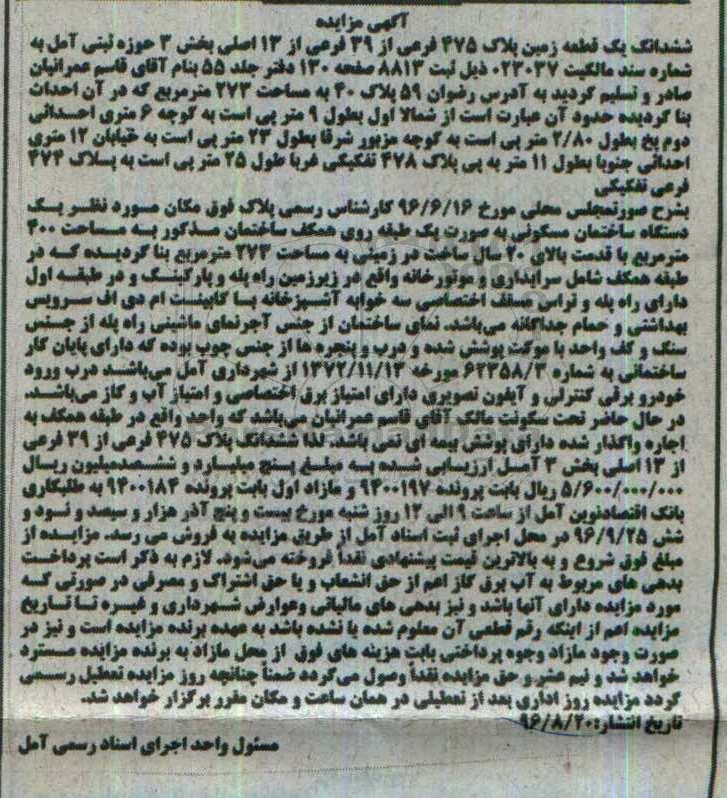 آگهی مزایده
ششدانگ یک قطعه زمین پلاک ۴۷۵ فرعی از ۳۹ فرعی از ۱۳ اصلی بخش ۳ حوزه ثبتی آمل به
شماره سند مالکیت ۰۲۳۰۳۷ ذیل ثبت ۸۸۱۳ صفحه ۱۳۰ دفتر جلد ۵۵ بنام آقای قاسم عمرانیان
صادر و تسلیم گردید به آدرس رضوان ۵۹ پلاک ۴۰ به مساحت ۲۷۳ مترمربع که در آن احداث
بنا گردیده حدود آن عبارت است از شمالا اول بطول ۹ متر پی است به کوچه ۶ متری احداثی
دوم پخ بطول ۲/۸۰ متر پی است به کوچه مزبور شرقا بطول ۲۳ متر پی است به خیابان ۱۲ متری
احداثی جنوبا بطول ۱۱ متر به پی پلاک ۴۷۸ تفکیکی غربا طول ۲۵ متر پی است به پلاک ۴۷۴
فرعی تفکیکی
بشرح صورتمجلس محلی مورخ ۹۶/۶/۱۶ کارشناس رسمی پلاک فوق مکان مورد نظر یک
دستگاه ساختمان مسکونی به صورت یک طبقه روی همکف ساختمان مذکور به مساحت ۴۰۰
مترمربع با قدمت بالای ۲۰ سال ساخت در زمینی به مساحت ۲۷۳ مترمربع بنا گردیده که در
طبقه همکف شامل سرایداری و موتورخانه واقع در زیرزمین راه پله و پارکینگ و در طبقه اول
دارای راه پله و تراس مسقف اختصاصی سه خوابه آشپزخانه با کابینت ام دی اف سرویس
بهداشتی و حمام جداگانه می‌باشد. نمای ساختمان از جنس آجرنمای ماشینی راه پله از جنس
سنگ و کف واحد با موکت پوشش شده و درب و پنجره ها از جنس چوب بوده که دارای پایان کار
ساختمانی به شماره ۶۲۳۵۸/۳ مورخه ۱۳۷۲/۱۱/۱۳ از شهرداری آمل می‌باشد درب ورود
خودرو برقی کنترلی و آیفون تصویری دارای امتیاز برق اختصاصی و امتیاز آب و گاز می‌باشد.
در حال حاضر تحت سکونت مالک آقای قاسم عمرانیان می‌باشد که واحد واقع در طبقه همکف به
اجاره واگذار شده دارای پوشش بیمه ای نمی باشد. لذا ششدانگ پلاک ۴۷۵ فرعی از ۳۹ فرعی
از ۱۳ اصلی بخش ۳ آمل ارزیابی شده به مبلغ پنج میلیارد و ششصدمیلیون ریال
۵/۶۰۰/۰۰۰/۰۰۰ ریال بابت پرونده ۹۴۰۰۱۹۷ و مازاد اول بابت پرونده ۹۴۰۰۱۸۴ به طلبکاری
بانک اقتصادنوین آمل از ساعت ۹ الی ۱۲ روز شنبه مورخ بیست و پنج آذر هزار و سیصد و نود و
شش ۹۶/۹/۲۵ در محل اجرای ثبت اسناد آمل از طریق مزایده به فروش می رسد. مزایده از
مبلغ فوق شروع و به بالاترین قیمت پیشنهادی نقداً فروخته می‌شود. لازم به ذکر است پرداخت
بدهی های مربوط به آب برق گاز اعم از حق انشعاب و یا حق اشتراک و مصرفی در صورتی که
مورد مزایده دارای آنها باشد و نیز بدهی های مالیاتی وعوارض شهرداری و غیره تا تاریخ
مزایده اعم از اینکه رقم قطعی آن معلوم شده یا نشده باشد به عهده برنده مزایده است و نیز در
صورت وجود مازاد وجوه پرداختی بابت هزینه های فوق از محل مازاد به برنده مزایده مسترد
خواهد شد و نیم عشر و حق مزایده نقداً وصول می‌گردد ضمناً چنانچه روز مزایده تعطیل رسمی
گردد مزایده روز اداری بعد از تعطیلی در همان ساعت و مکان مقرر برگزار خواهد شد.
تاریخ انتشار:۹۶/۸/۲۰
مسئول واحد اجرای اسناد رسمی آمل